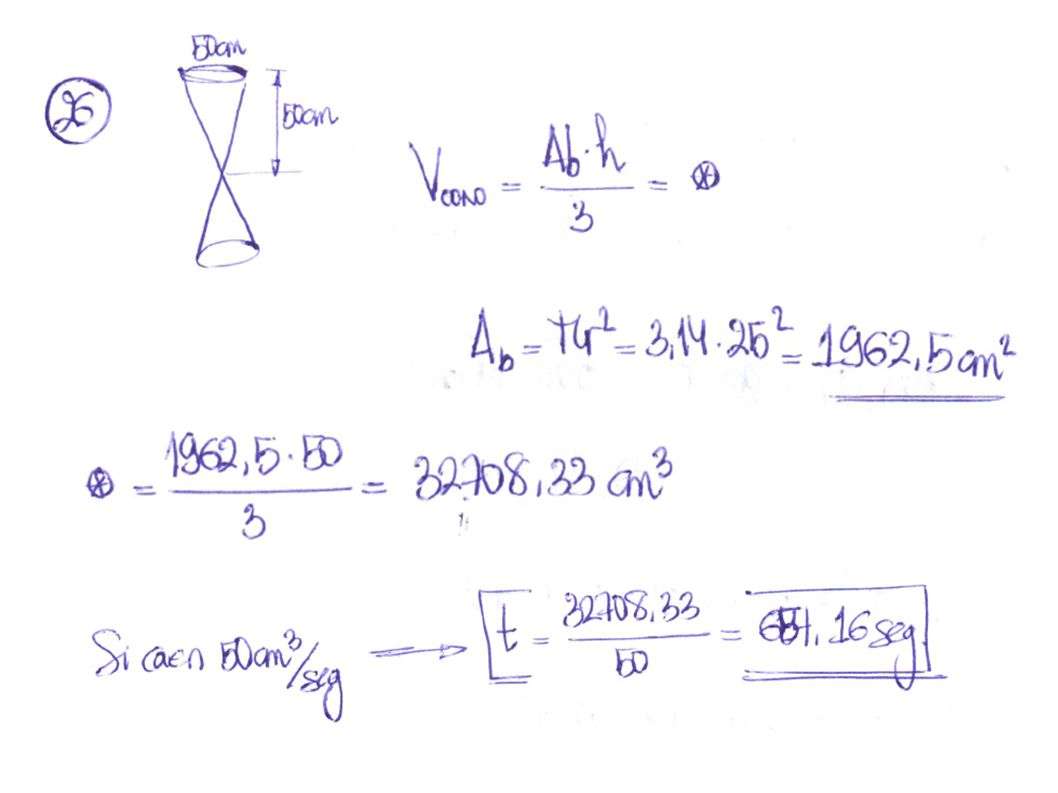 50cm
26
50cm
V_cono = Ab·h / 3 = ⊛
A_b = πr² = 3,14·25² = 1962,5 cm²
⊛ = 1962,5·50 / 3 = 32708,33 cm³
Si caen 50cm³/seg → t = 32708,33 / 50 = 654,16 seg.